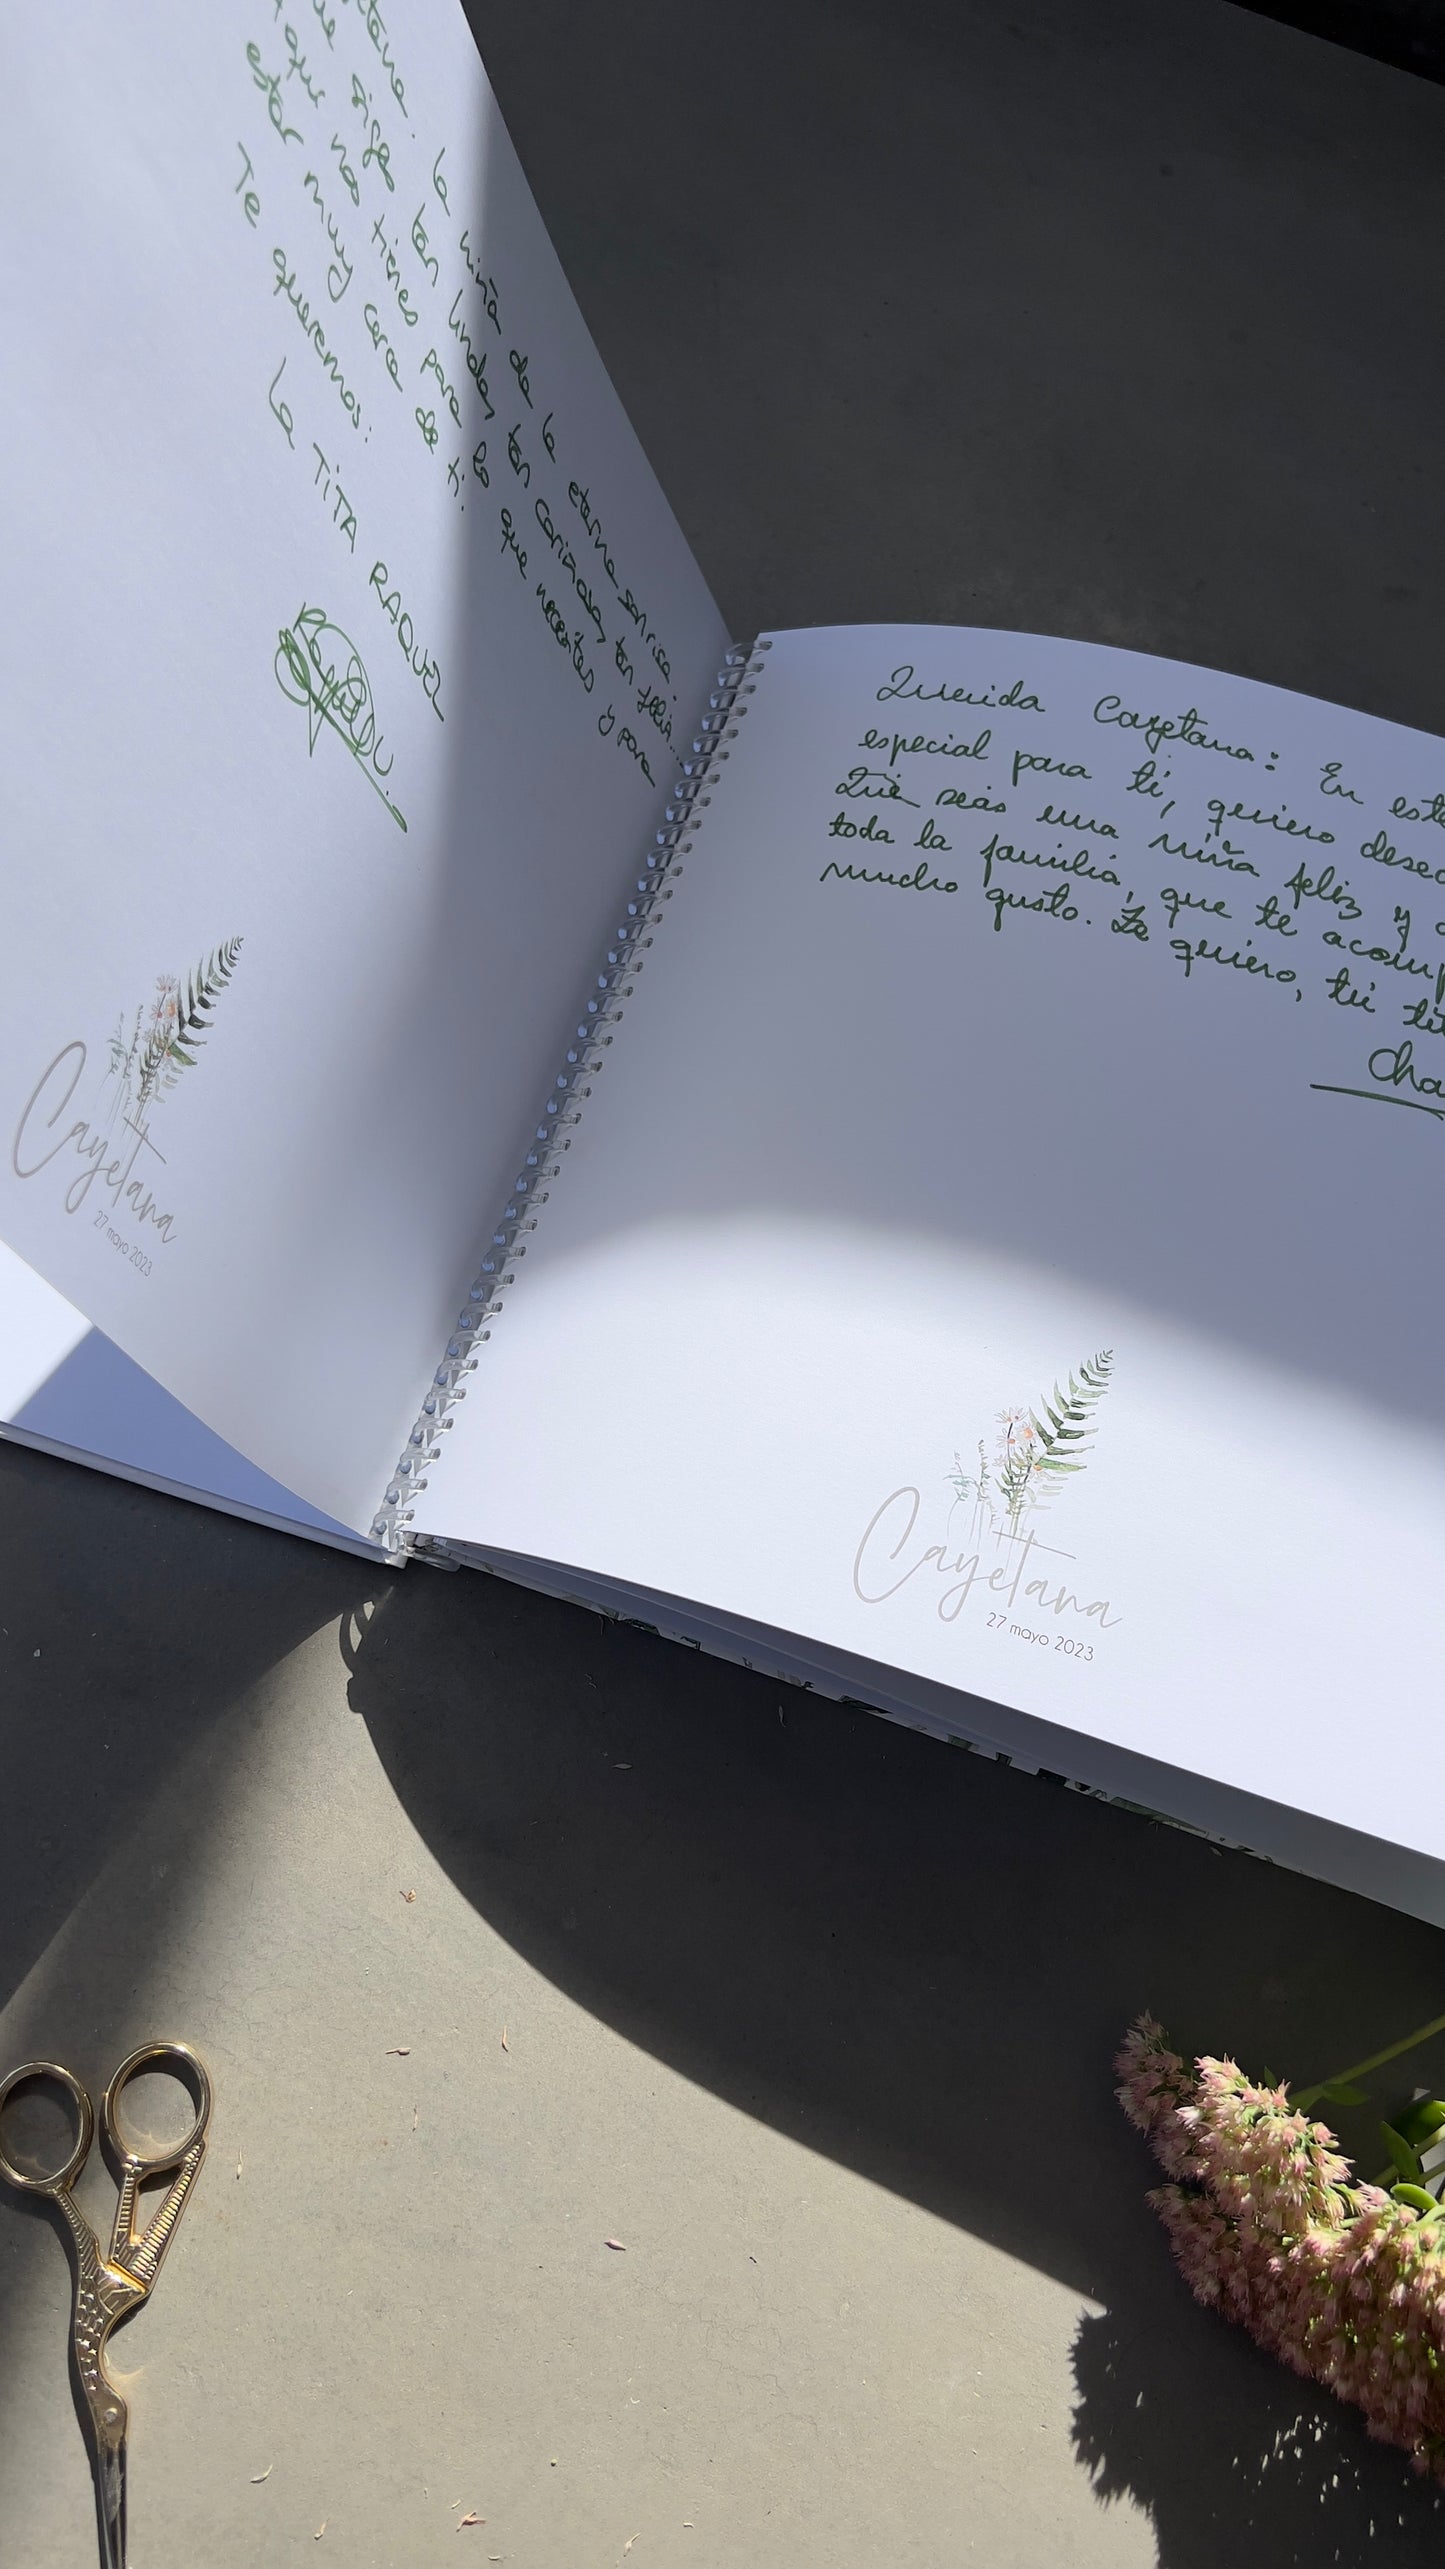 la niña de la eterna sonrisa.
sigo tan linda, tan cariñosa, tan feliz...
que nos tienes para lo que necesites y para
estar muy cerca de ti.
Te queremos:
la TITA RAQUEL
Cayetana
27 mayo 2023
Querida Cayetana: En este
especial para ti, quiero
Que seas una niña feliz y
toda la familia, que te
mucho gusto. Te quiero, tú
Cayetana
27 mayo 2023